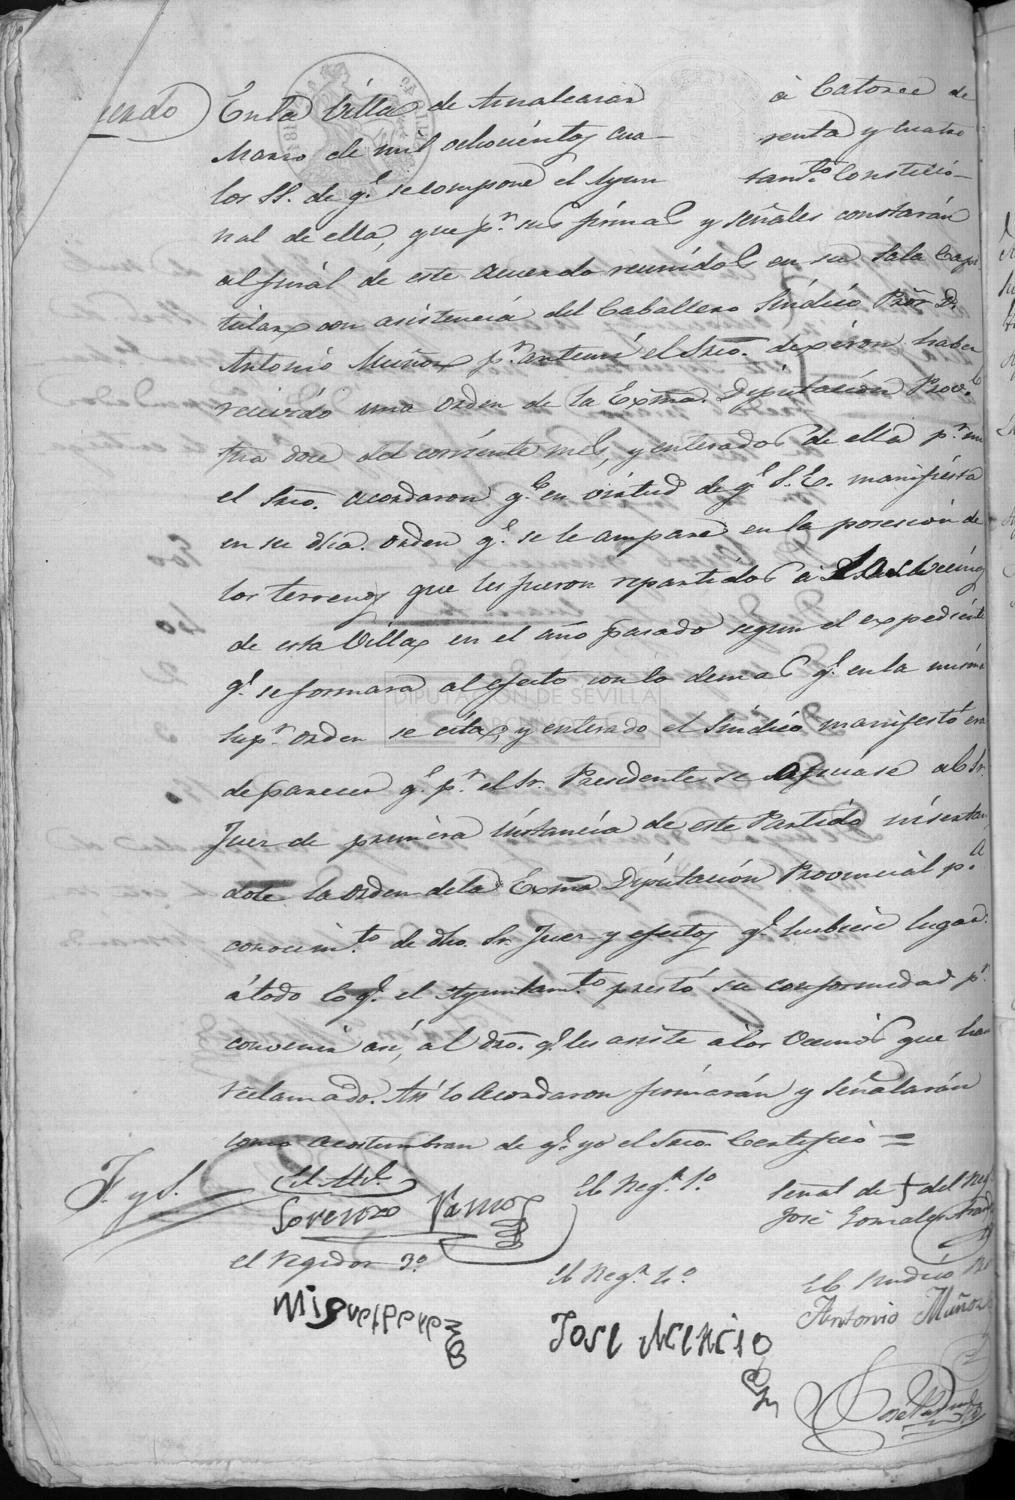 En la Villa de Aznalcazar à Catorce de
Marzo de mil ochocientos cua- renta y cuatro
los SS. de qe. se compone el Ayun tamto. Constitucio-
nal de ella, que pr. sus firmas y señales constarán
al final de este acuerdo reunidos en su Sala Capi
tular con asistencia del Caballero Síndico Pror. Dn.
Antonio Muñoz pr. antemi el Srio. dixeron haber
recivido una orden de la Exma. Diputación Prov.l
fha doce del corriente mes, y enterados de ella pr. mi
el Srio. acordaron qe. en virtud de qe. S.E. manifiesta
en su dha. orden qe. se le ampare en la posesion de
los terrenos que les fueron repartidos à los Vecinos
de esta Villa en el año pasado segun el expediente
qe. se formara al efecto con lo demas qe. en la misma
Supr. orden se cita, y enterado el Síndico manifestó era
de parecer qe. pr. el Sr. Presidente se oficiase al Sr.
Juez de primera instancia de este Partido insertan
dole la orden de la Exma Diputación Provincial pa.
conocimto. de dho. Sr. Juez y efectos qe. hubiese lugar.
à todo lo qe. el Ayuntamto. prestó su conformidad pr.
convenir así, al dro. qe. les asiste à los Vecinos que han
reclamado. Así lo acordaron firmarán y señalarán
como acostumbran de qe. yo el Srio. Certifico =
F. y S.
El Alde.
Lorenzo Ramos
El Regr. 1º
Señal de + del Regr
José Gonzalez
el Regidor 3º
Miguel Perez
El Regr. 4º
Jose Acencio
El Sindico
Antonio Muñoz
DIPUTACIÓN DE SEVILLA